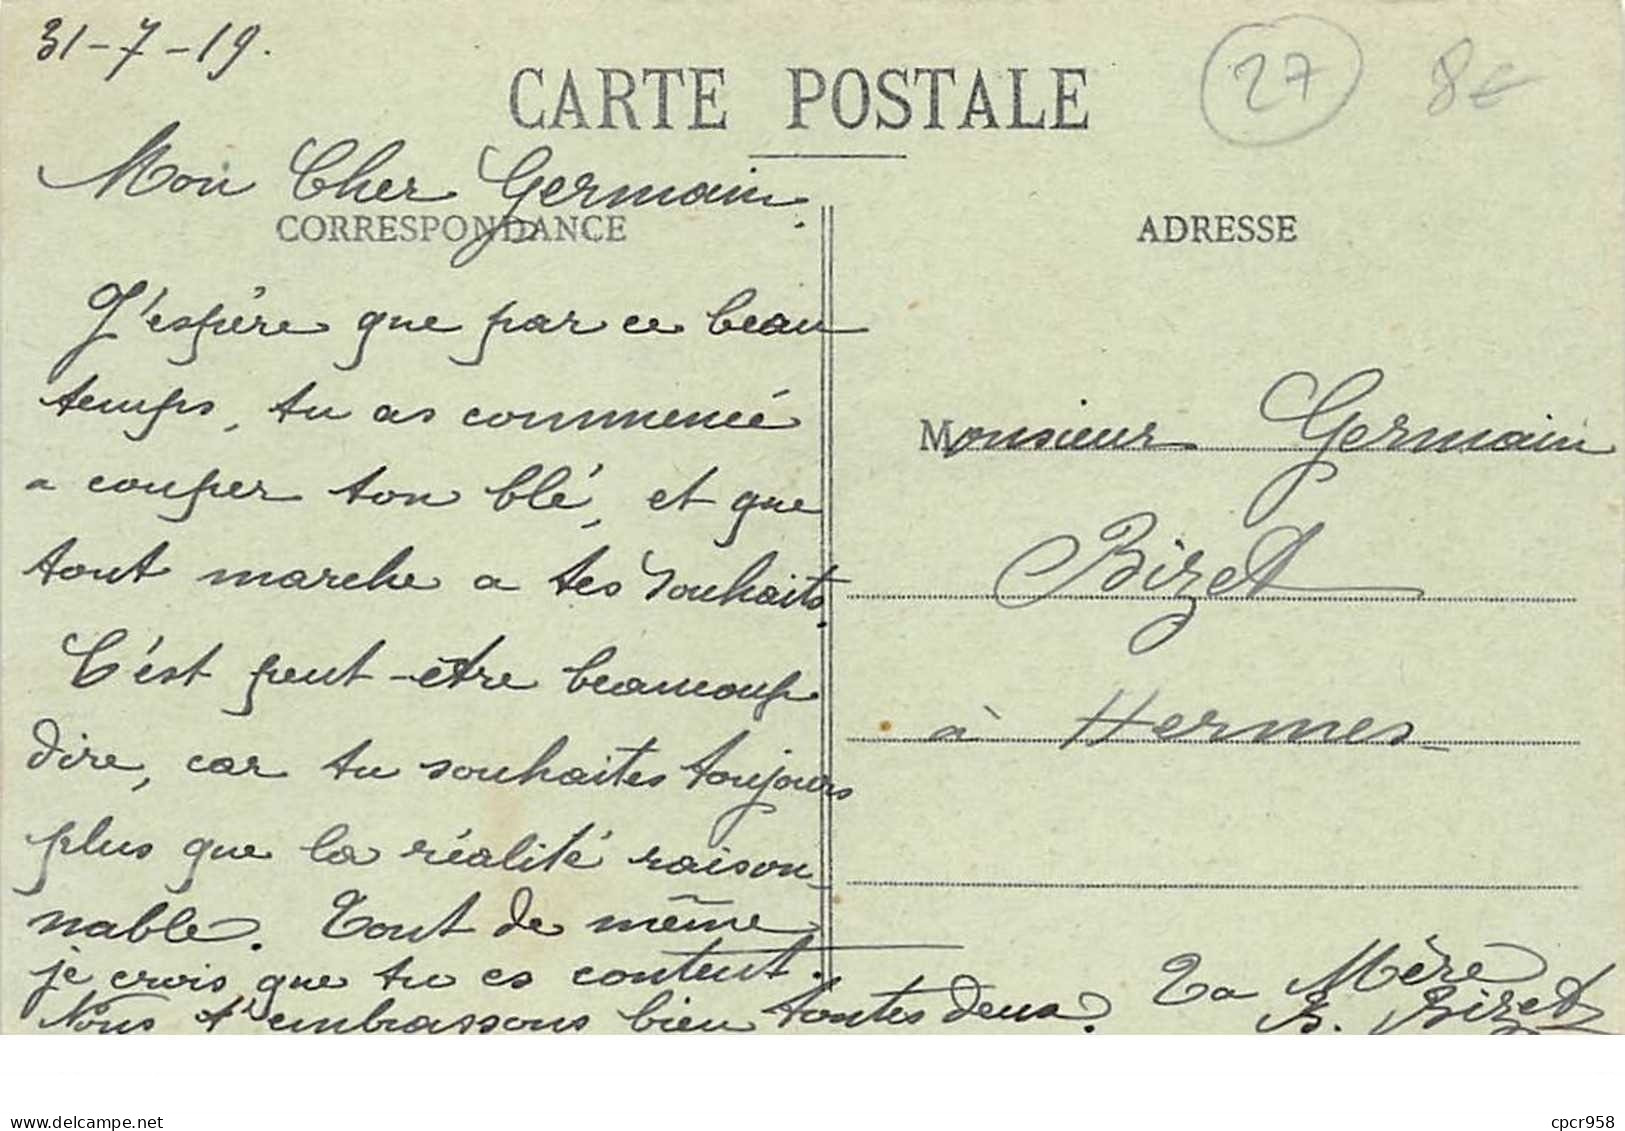 31-7-19.
27
8€
CARTE POSTALE
Mon Cher Germain.
CORRESPONDANCE
J'espère que par ce beau
temps, tu as commencé
a couper ton blé, et que
tout marche a tes souhaits.
C'est peut-etre beaucoup
dire, car tu souhaites toujours
plus que la réalité raison-
nable. Tout de même
je crois que tu es content.
Nous t'embrassons bien toutes deux.
Ta Mère
B. Bizet
ADRESSE
Monsieur Germain
Bizet
à Hermes
delcampe.net
cpcr958